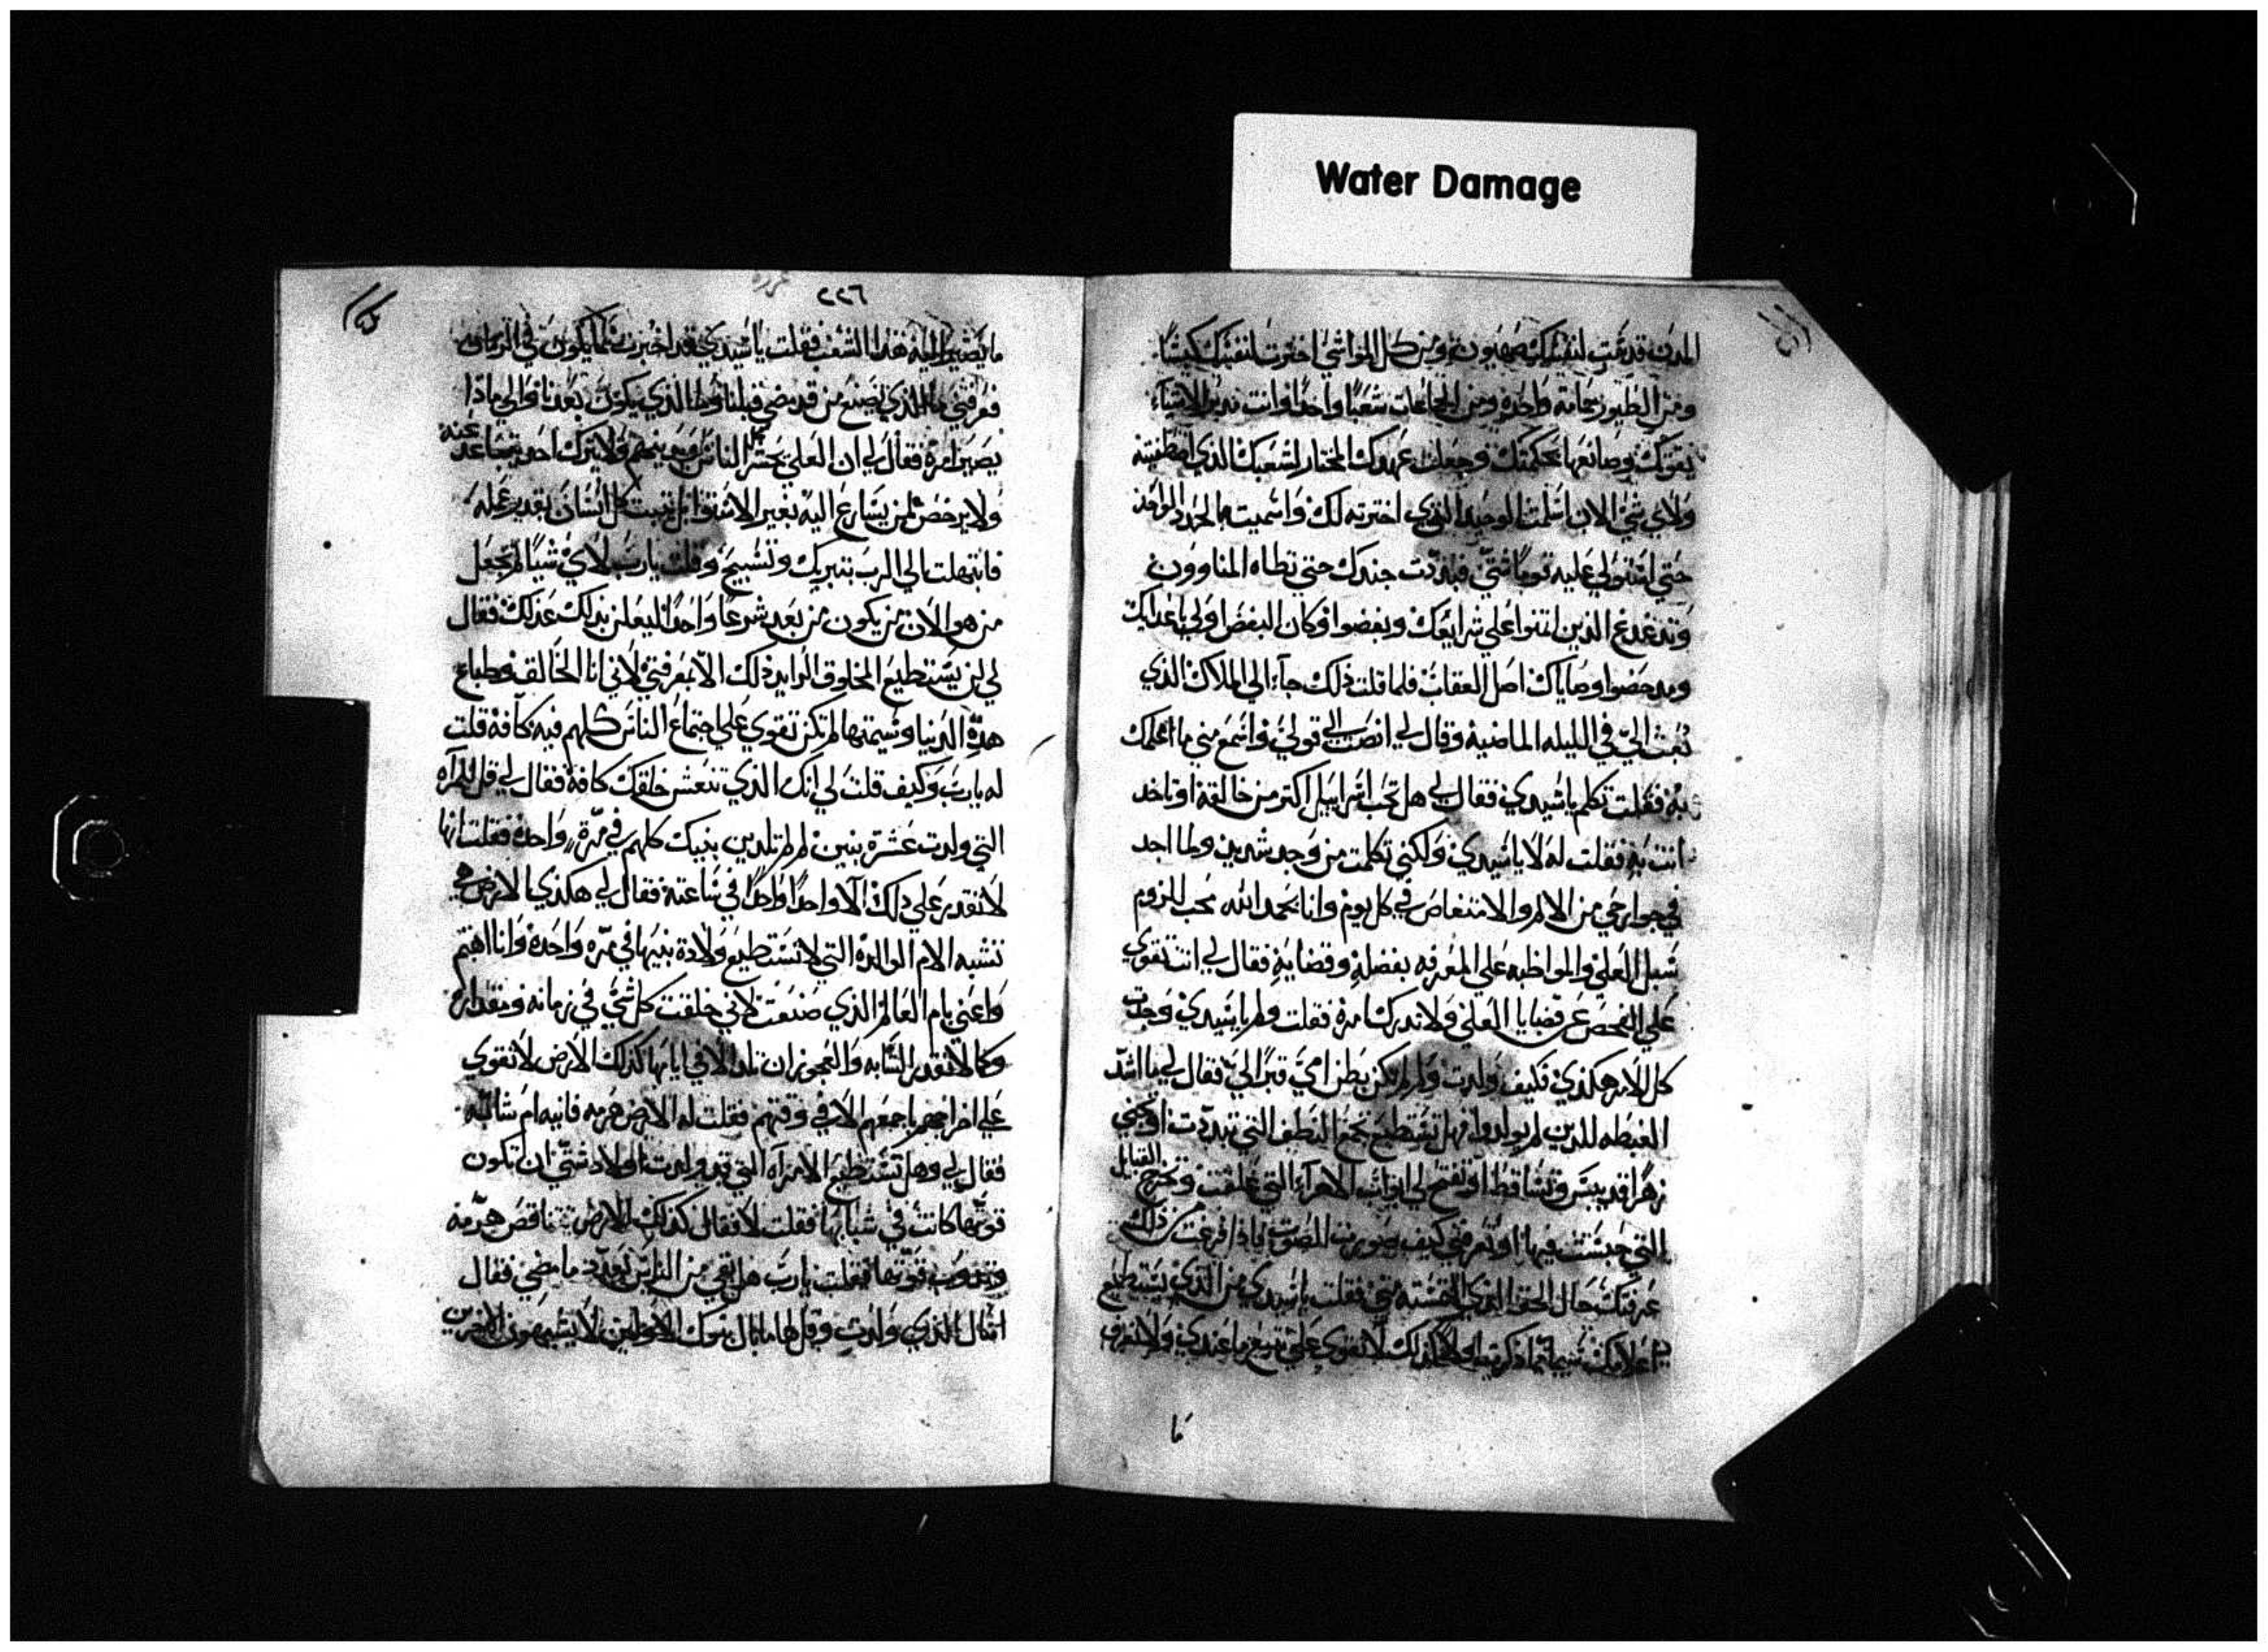 Water Damage
المدن قدست لنفسك صهيون ومن كل المواشي اخترت لنفسك كبشًا
ومن الطيور حمامة واحدة ومن الجماعات شعبًا واحدًا وانت تدبر الاشياء
بقوتك وصانعها بحكمتك وجعلت عهدك المختار لشعبك الذي اصطفيته
ولاي شي الان اسلمت الوحيد الذي اخترته لك واسميته
حتى استولي عليه قومًا شتي فبددت جندك حتى تطاه المناوون
الذين على شرايعك وبغضوا وكان البغض اولي باعدايك
اصل العقاب فلما قلت ذلك جاء الي الملاك الذي
بُعث اليّ في الليله الماضية وقال لي انصت الي قولي واسمع مني ما اعلمك
به فقلت تكلم يا سيدي فقال لي هل تحب اسراييل اكتر من خالقه او تاخد
انت به فقلت له لا يا سيدي ولكني تكلمت من وجد شديد ولما اجد
في جوارحي من الالم والامتغاص في كل يوم وانا بحمد الله محب للزوم
سبل العلي والمواظبه علي المعرفه بفضله وقضايه فقال لي انت تقوي
علي الفحص عن قضايا العلي ولا تدرك امره فقلت ولم يا سيدي وجدت
كل الامر هكذي فكيف ولدت ولم لم تكن بطن امي قبرًا لي فقال لي ما اشد
الغبطه للدين لم يولدوا فهل تستطيع تجمع النطف التي تبددت او تجني
زهرا قد يبس وتساقط او تفتح لي ابواب الاهراء التي غلقت وتخرج القبايل
التي حبست فيها او تعرفني كيف صورت الصوت فاذا فرغت من ذلك
عرفتك حال الحق الذي التمسته مني فقلت يا سيدي من الذي يستطيع
لا تقوي علي ما عندي ولا تعرف
ما
٢٢٦
ما يصير اليه هذا الشعب فقلت يا سيدي قد اخبرت بما يكون في الزمان
فعرفني ما الذي يصنع من قد مضي قبلنا وما الذي يكون بعدنا والي ماذا
يصير امره فقال لي ان العلي يحشر كل الناس ولا يترك احد يتباعد عنه
ولا يرخص لمن يسارع اليه بغير الاستقرا بل يثيب كل انسان بقدر عمله
فابتهلت الي الرب بتبريك وتسبيح وقلت يا رب لاي شيًا لم تجعل
من هو الان من يكون من بعد شرعًا واحدًا ليعلن بذلك عدلك فقال
لي لن يستطيع المخلوق الزايد ذلك الا بمعرفتي لاني انا الخالق وطباع
هذه الدنيا وشيمتها لم تكن تقوي علي اجتماع الناس كلهم فيه كافة قلت
له يا رب وكيف قلت لي انك الذي تنعش خلقك كافة فقال لي قل للمراه
التي ولدت عشرة بنين لم لم تلدين بنيك كلهم في مرّة واحدة فقلت انها
لا تقدر علي ذلك الا واحدًا واحدًا في ساعته فقال لي هكذي الارض هي
تشبه الام الوالدة التي لا تستطيع ولادة بنيها في مره واحدة وانا اهتم
واعني بام العالم الذي صنعت لاني خلقت كل شي في زمانه ومقداره
وكما لا تقدر الشابه والعجوز ان تلد الا في ايامها كذلك الارض لا تقوي
علي اخراجهم باجمعهم الا في وقتهم فقلت له الارض هرمه فانيه ام شابّه
فقال لي وهل تستطيع الامراه التي قد ولدت اولاد شتي ان تكون
قوتها كانت في شبابها فقلت لا فقال كذلك الارض تناقص هرمه
وتذوب قوتها فقلت يا رب هل بقي من الناس بعدد ما مضي فقال
اسال الذي ولدت وقل لها ما بال بنوك الاولين لا يشبهون الاخرين